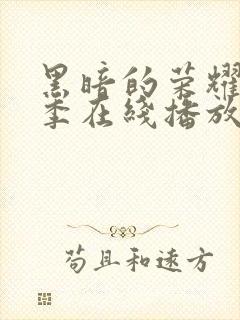 黑暗的荣耀
季在线播放
苟且和远方